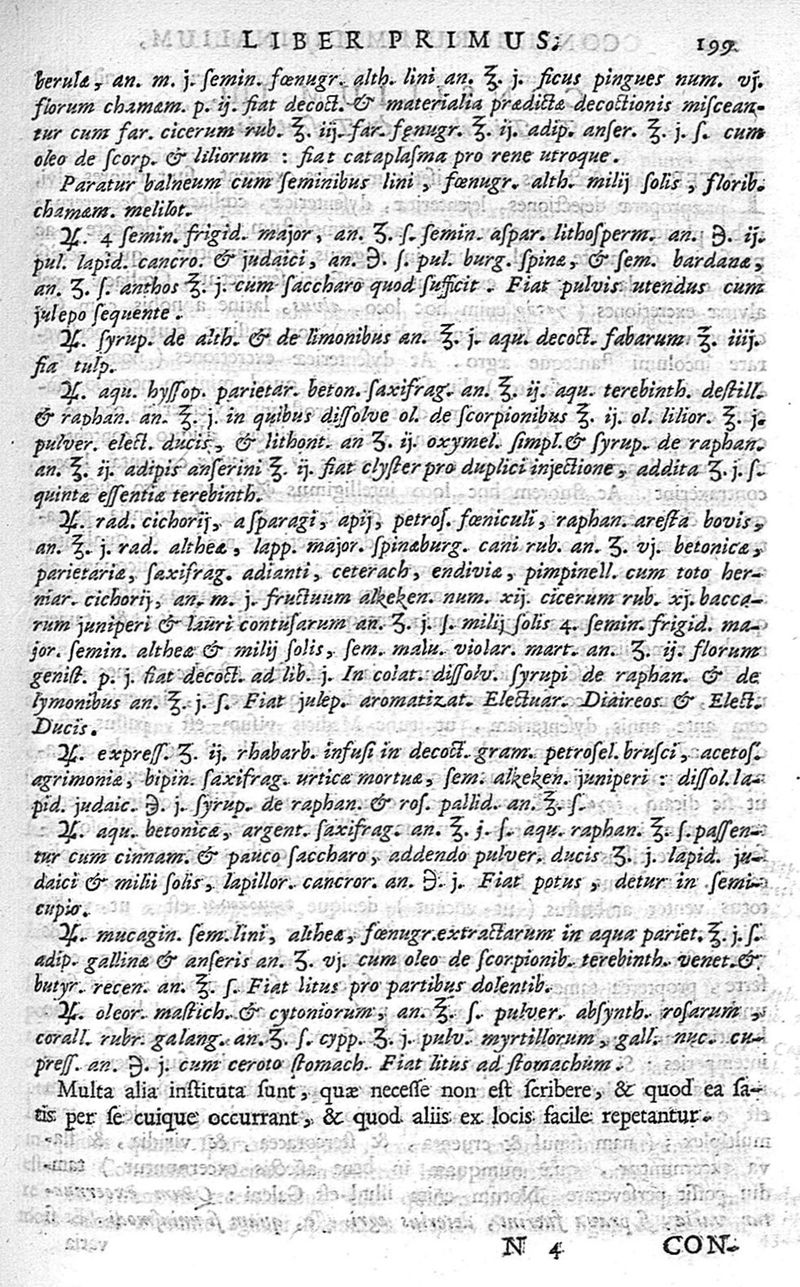 LIBER PRIMUS. 199
berulæ, an. m. j. ſemin. fœnugr. alth. lini an. ℥. j. ficus pingues num. vj.
florum chamæm. p. ij. fiat decoct. & materialia prædictæ decoctionis miſcean-
tur cum far. cicerum rub. ℥. iij. far. fenugr. ℥. ij. adip. anſer. ℥. j. ſ. cum
oleo de ſcorp. & liliorum : fiat cataplaſma pro rene utroque.
Paratur balneum cum ſeminibus lini, fœnugr. alth. milij ſolis, florib.
chamæm. melilot.
℞. 4 ſemin. frigid. major, an. ʒ. ſ. ſemin. aſpar. lithoſperm. an. ℈. ij.
pul. lapid. cancro. & judaici, an. ℈. ſ. pul. burg. ſpinæ, & ſem. bardanæ,
an. ʒ. ſ. anthos ℥. j. cum ſaccharo quod ſufficit. Fiat pulvis utendus cum
julepo ſequente.
℞. ſyrup. de alth. & de limonibus an. ℥. j. aqu. decoct. fabarum ℥. iiij.
fia tulp.
℞. aqu. hyſſop. parietar. beton. ſaxifrag. an. ℥. ij. aqu. terebinth. deſtill.
& raphan. an. ℥. j. in quibus diſſolve ol. de ſcorpionibus ℥. ij. ol. lilior. ℥. j.
pulver. elect. ducis, & lithont. an ʒ. ij. oxymel. ſimpl. & ſyrup. de raphan.
an. ℥. ij. adipis anſerini ℥. ij. fiat clyſter pro duplici injectione, addita ʒ. j. ſ.
quintæ eſſentiæ terebinth.
℞. rad. cichorij, aſparagi, apij, petroſ. fœniculi, raphan. areſta bovis,
an. ℥. j. rad. altheæ, lapp. major. ſpinæburg. cani rub. an. ʒ. vj. betonicæ,
parietariæ, ſaxifrag. adianti, ceterach, endiviæ, pimpinell. cum toto her-
niar. cichorij, an. m. j. fructuum alkeken. num. xij. cicerum rub. xj. bacca-
rum juniperi & lauri contuſarum an. ʒ. j. ſ. milij ſolis 4. ſemin. frigid. ma-
jor. ſemin. altheæ & milij ſolis, ſem. malu. violar. mart. an. ʒ. ij. florum
geniſt. p. j. fiat decoct. ad lib. j. In colat. diſſolv. ſyrupi de raphan. & de
lymonibus an. ℥. j. ſ. Fiat julep. aromatizat. Electuar. Diaireos & Elect.
Ducis.
℞. expreſſ. ʒ. ij. rhabarb. infuſi in decoct. gram. petroſel. bruſci, acetoſ.
agrimoniæ, bipin. ſaxifrag. urticæ mortuæ, ſem. alkeken. juniperi : diſſol. la-
pid. judaic. ℈. j. ſyrup. de raphan. & roſ. pallid. an. ℥. ſ.
℞. aqu. betonicæ, argent. ſaxifrag. an. ℥. j. ſ. aqu. raphan. ℥. ſ. paſſen-
tur cum cinnam. & pauco ſaccharo, addendo pulver. ducis ʒ. j. lapid. ju-
daici & milii ſolis, lapillor. cancror. an. ℈. j. Fiat potus, detur in ſemi-
cupio.
℞. mucagin. ſem. lini, altheæ, fœnugr. extractarum in aqua pariet. ℥. j. ſ.
adip. gallinæ & anſeris an. ʒ. vj. cum oleo de ſcorpionib. terebinth. venet. &
butyr. recen. an. ℥. ſ. Fiat litus pro partibus dolentib.
℞. oleor. maſtich. & cytoniorum, an. ℥. ſ. pulver. abſynth. roſarum,
corall. rubr. galang. an. ʒ. ſ. cypp. ʒ. j. pulv. myrtillorum, gall. nuc. cu-
preſſ. an. ℈. j. cum ceroto ſtomach. Fiat litus ad ſtomachum.
Multa alia inſtituta ſunt, quæ neceſſe non eſt ſcribere, & quod ea ſa-
tis per ſe cuique occurrant, & quod aliis ex locis facile repetantur.
N 4 CON-